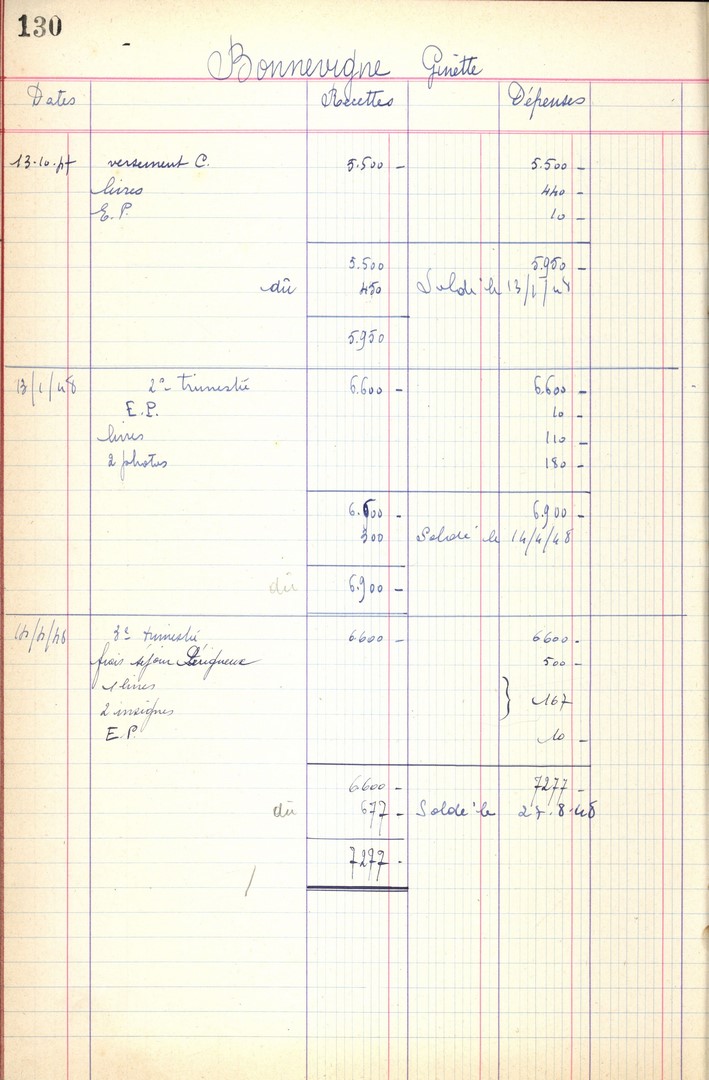 130
Bonnevigne Ginette
Dates Recettes Dépenses
13.10.47 versement C. 5.500 - 5.500 -
livres 440 -
E.P. 10 -
5.500 5.950 -
dû 450 Soldé le 13/1/48
5950
13/1/48 2e trimestre 6.600 - 6.600 -
E.P. 10 -
livres 110 -
2 photos 180 -
6.600 - 6.900 -
300 Soldé le 14/4/48
dû 6.900 -
14/4/48 3e trimestre 6600 - 6600 -
frais séjour Périgueux 500 -
1 livres
} 167
2 insignes
E.P. 10 -
6600 - 7277 -
dû 677 - Soldé le 27.8.48
7277 -